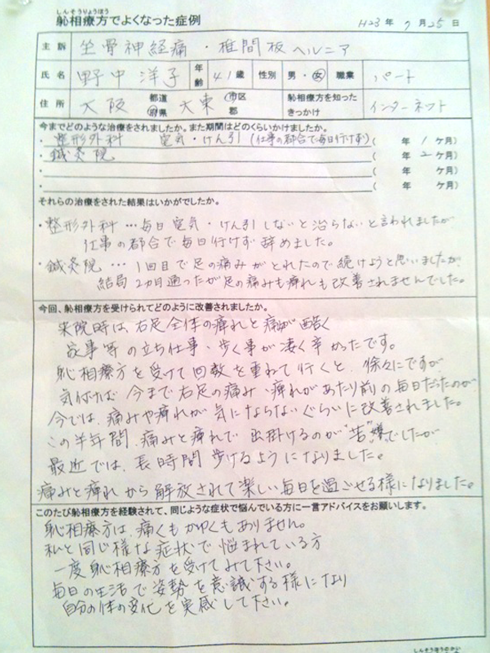 しんそうりょうほう
躯相療方でよくなった症例 H23年 7月25日
主訴 坐骨神経痛・椎間板ヘルニア
氏名 野中洋子 年齢 41歳 性別 男・女 職業 パート
住所 大阪 都道府県 大東 市区郡 躯相療方を知ったきっかけ インターネット
今までどのような治療をされましたか。また期間はどのくらいかけました。
・整形外科 電気・けん引(仕事の都合で毎日行けず)( 年 1ヶ月)
・鍼灸院 ( 年 2ヶ月)
・ ( 年 ヶ月)
・ ( 年 ヶ月)
それらの治療をされた結果はいかがでしたか。
・整形外科…毎日電気・けん引しないと治らないと言われましたが
仕事の都合で毎日行けず辞めました。
・鍼灸院…1回目で足の痛みがとれたので続けようと思いましたが
結局2カ月通ったが足の痛みも痺れも改善されませんでした。
今回、躯相療方を受けられてどのように改善されましたか。
来院時は、右足全体の痺れと痛みが酷く
家事等の立ち仕事・歩く事が凄く辛かったです。
躯相療方を受けて回数を重ねて行くと、徐々にですが
気付けば今まで右足の痛み・痺れがあたり前の毎日だったのが
今では、痛みや痺れが気にならないぐらいに改善されました。
この半年間、痛みと痺れで出掛けるのが"苦"でしたが
最近では、長時間歩けるようになりました。
痛みと痺れから解放されて楽しい毎日を過ごせる様になりました。
このたび躯相療方を経験されて、同じような症状で悩んでいる方に一言アドバイスをお願いします。
躯相療方は、痛くもかゆくもありません。
私と同じ様な症状で悩まれている方
一度躯相療方を受けてみて下さい。
毎日の生活で姿勢を意識する様になり
自分の体の変化を実感して下さい。